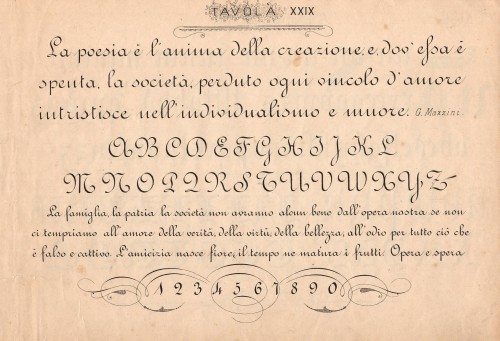 TAVOLA XXIX
La poesia è l'anima della creazione, e, dov' essa è
spenta, la società, perduto ogni vincolo d'amore
intristisce nell'individualismo e muore. G. Mazzini.
A B C D E F G H I J K L
M N O P Q R S T U V W X Y Z
La famiglia, la patria la società non avranno alcun bene dall'opera nostra se non
ci tempriamo all'amore della verità, della virtù, della bellezza, all'odio per tutto ciò che
è falso e cattivo. L'amicizia nasce fiore, il tempo ne matura i frutti. Opera e spera
1 2 3 4 5 6 7 8 9 0